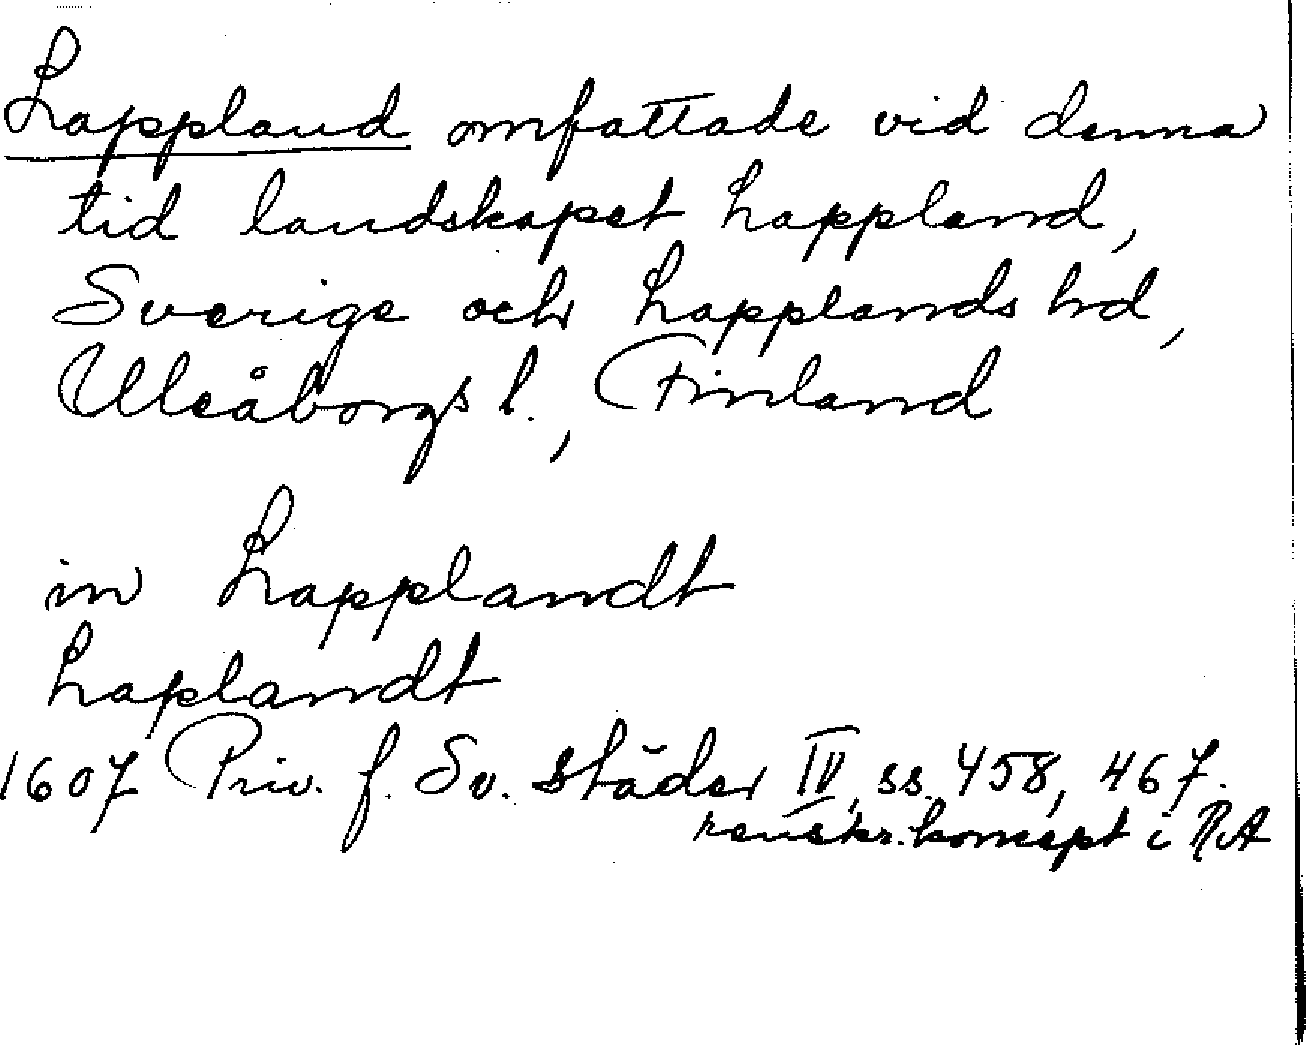 Lappland omfattade vid denna
tid landskapet Lappland,
Sverige och Lapplands hd,
Uleåborgs l., Finland
in Lapplandt
Laplandt
1607 Priv. f. Sv. städer IV, ss. 458, 467.
renskr. koncept i RA